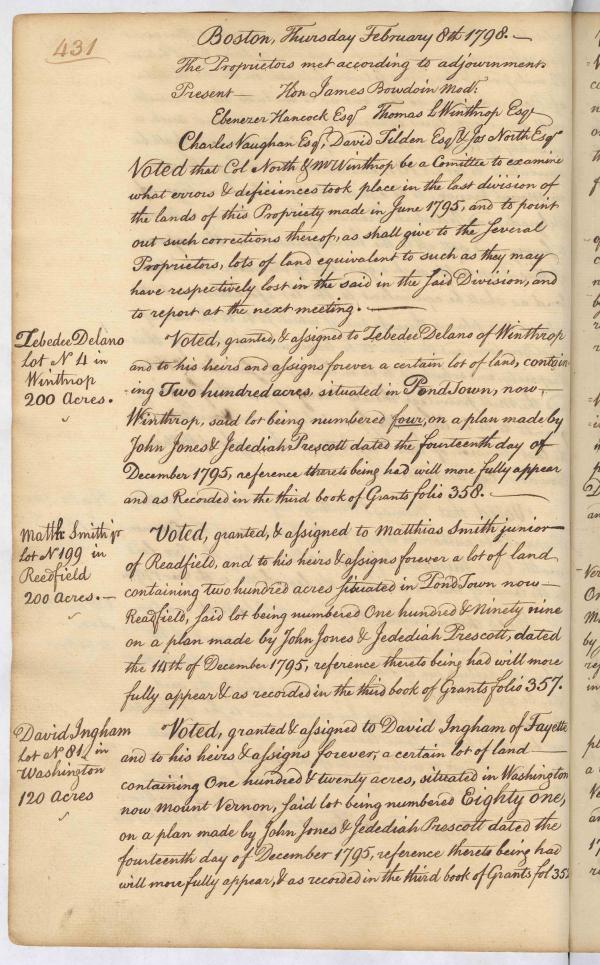 431
Boston, Thursday February 8th 1798.—
The Proprietors met according to adjournment
Present — Hon James Bowdoin Modr
Ebenezer Hancock Esqr Thomas L Winthrop Esqr
Charles Vaughan Esqr, David Tilden Esqr & Jos North Esqr
Voted that Col North & Mr Winthrop be a Comittee to examine
what errors & deficiences took place in the last division of
the lands of this Propriety made in June 1795, and to point
out such corrections thereof, as shall give to the several
Proprietors, lots of land equivalent to such as they may
have respectively lost in the said in the said Division, and
to report at the next meeting.—
Zebedee Delano
Lot No 4 in
Winthrop
200 Acres.
Voted, granted, & assigned to Zebedee Delano of Winthrop
and to his heirs and assigns forever a certain lot of land, contain-
-ing Two hundred acres, situated in PondTown, now—
Winthrop, said lot being numbered four, on a plan made by
John Jones & Jedediah Prescott dated the fourteenth day of
December 1795, reference thereto being had will more fully appear
and as Recorded in the third book of Grants folio 358.—
Matths Smith jr
Lot No 199 in
Reedfield
200 Acres.—
Voted, granted, & assigned to Matthias Smith junior
of Readfield, and to his heirs & assigns forever a lot of land
containing two hundred acres situated in PondTown now—
Readfield, said lot being numbered One hundred & Ninety nine
on a plan made by John Jones & Jedediah Prescott, dated
the 14th of December 1795, reference thereto being had will more
fully appear & as recorded in the third book of Grants folio 357.
David Ingham
Lot No 81, in
Washington
120 Acres
Voted, granted & assigned to David Ingham of Fayette
and to his heirs & assigns forever, a certain lot of land—
containing One hundred & twenty acres, situated in Washington
now Mount Vernon, said lot being numbered Eighty one,
on a plan made by John Jones & Jedediah Prescott dated the
fourteenth day of December 1795, reference thereto being had
will more fully appear, & as recorded in the third book of Grants fol